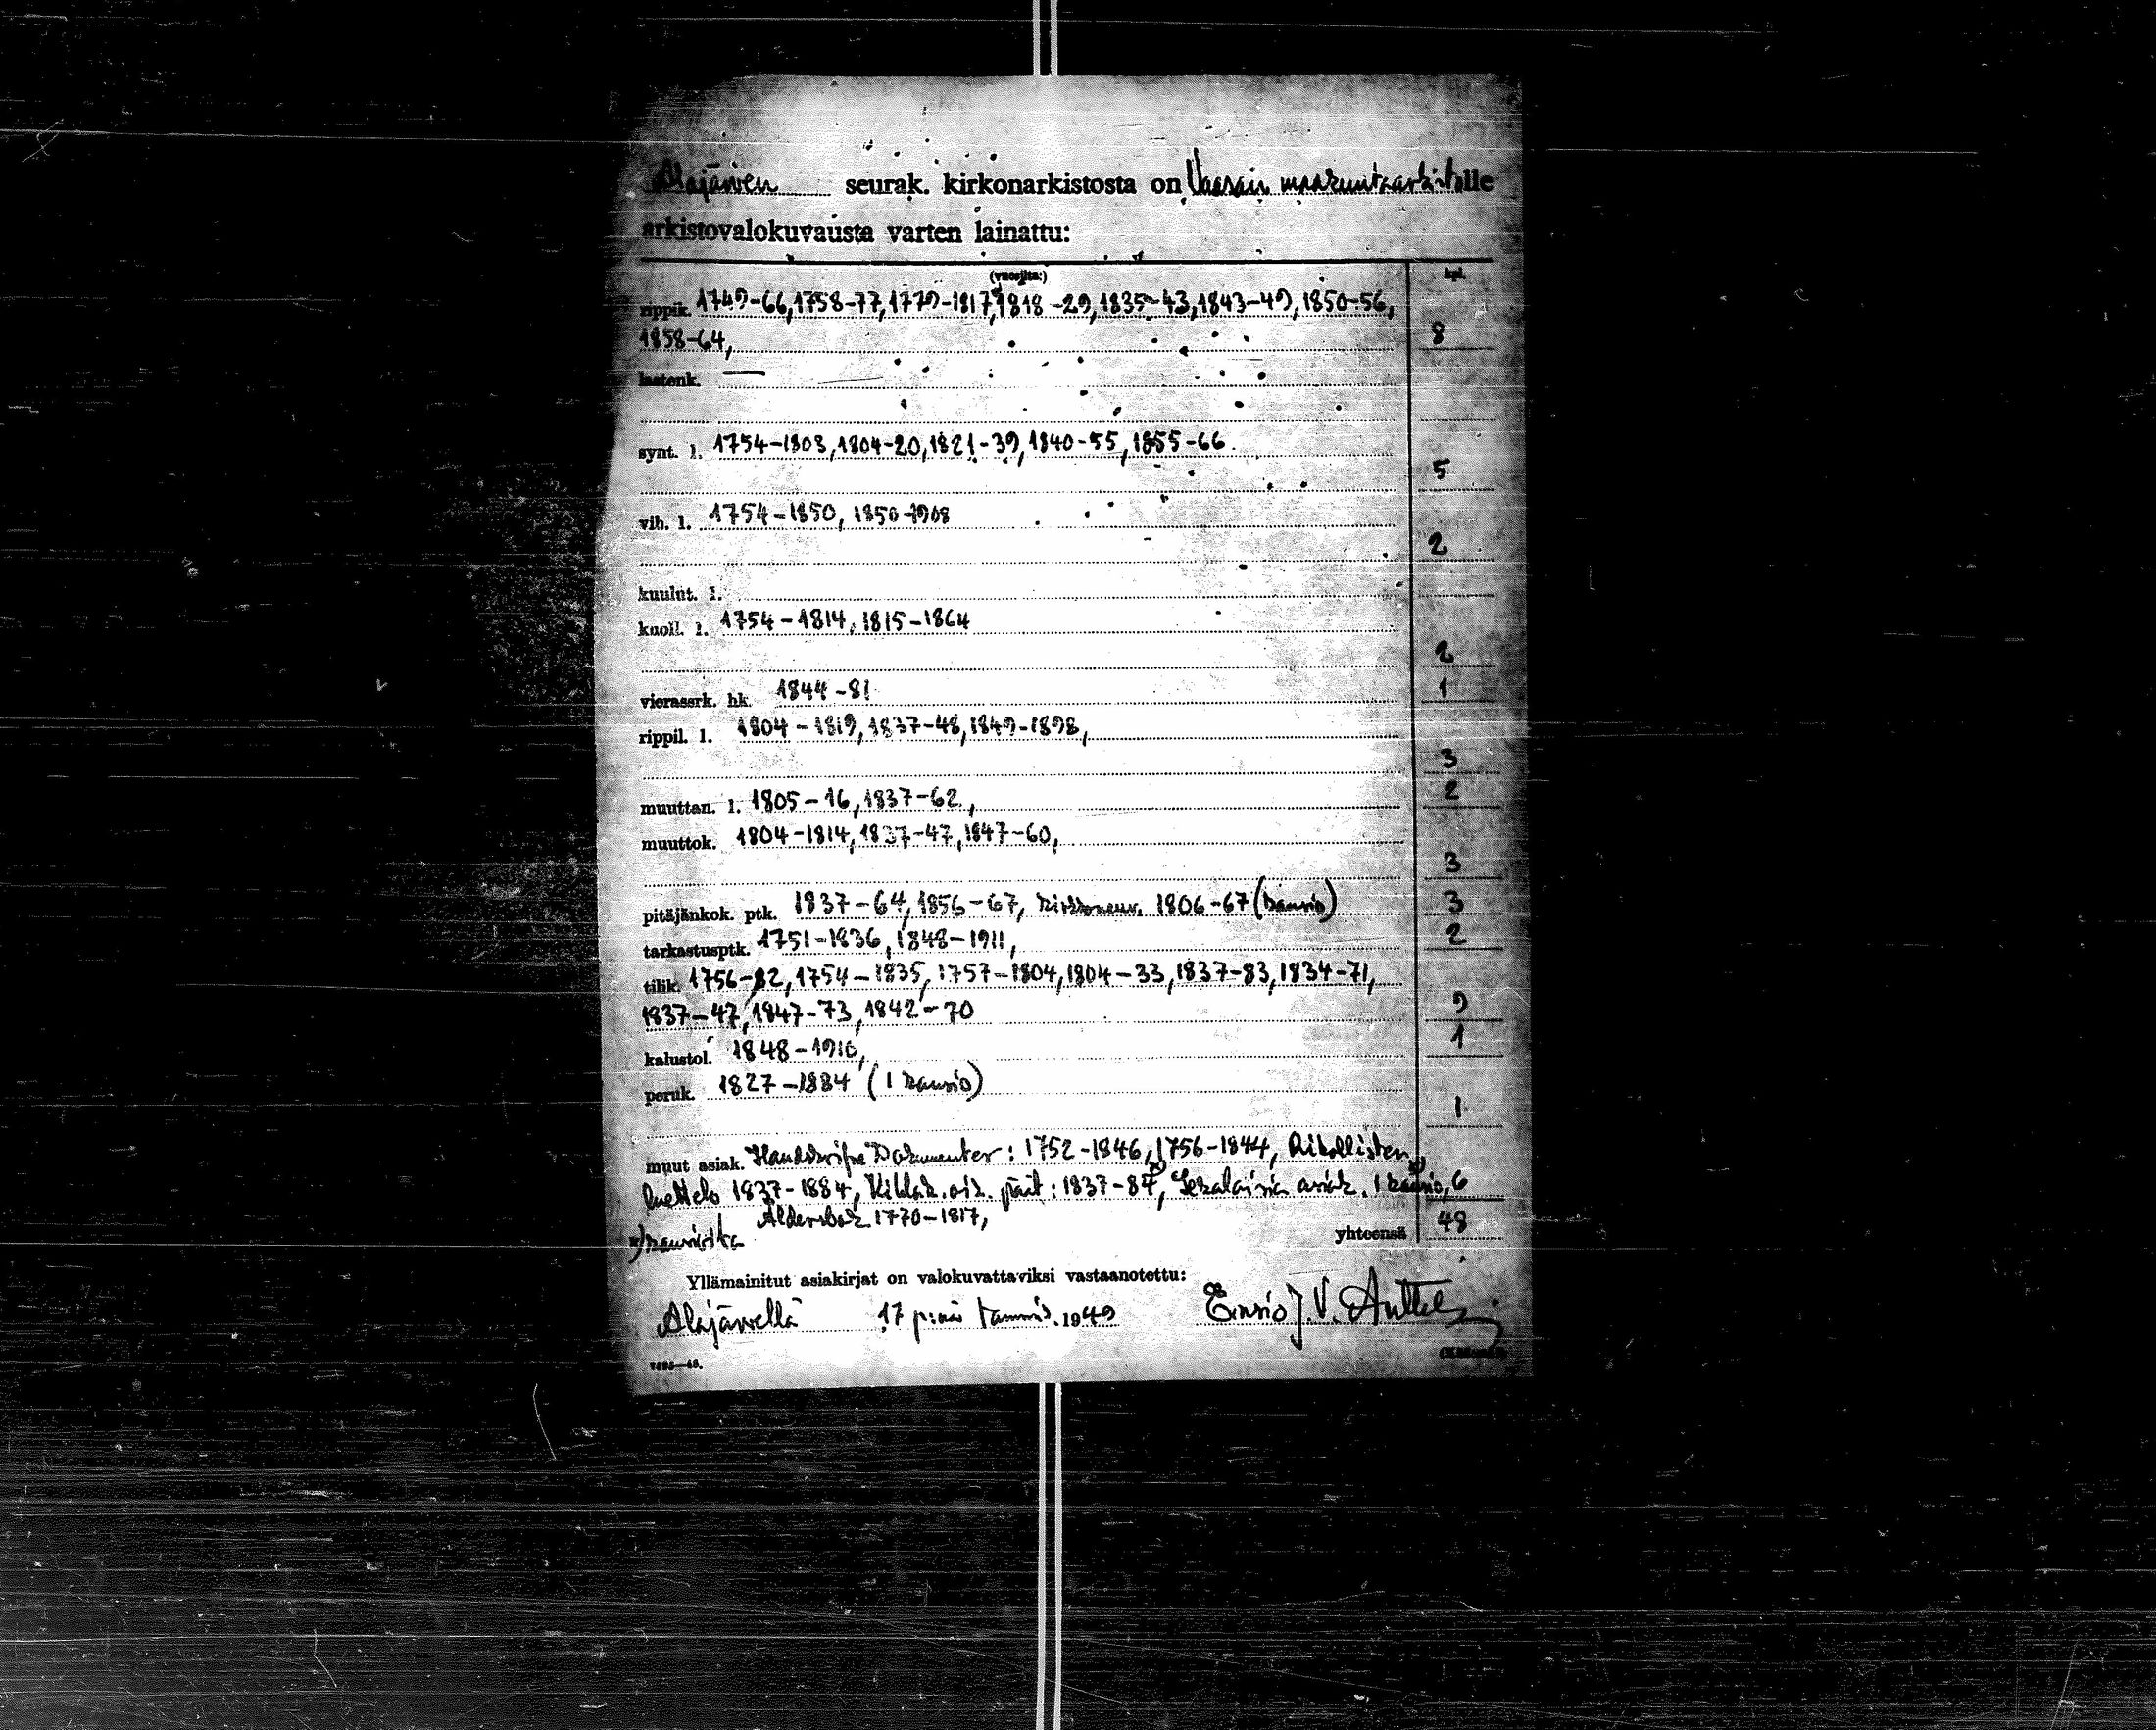 Alajärven seurak. kirkonarkistosta on Vaasan maakuntaarkistolle
arkistovalokuvausta varten lainattu:
(vuosilta:) kpl.
rippik. 1749-66, 1758-77, 1779-1817, 1818-29, 1835-43, 1843-49, 1850-56,
1858-64, 8
lastenk. —
synt. l. 1754-1803, 1804-20, 1821-39, 1840-55, 1855-66
5
vih. l. 1754-1850, 1850-1908
2
kuulut. l.
kuoll. l. 1754-1814, 1815-1864
2
vierassrk. hk. 1844-81 1
rippil. l. 1804-1819, 1837-48, 1849-1898,
3
muuttan. l. 1805-16, 1837-62, 2
muuttok. 1804-1814, 1837-47, 1847-60,
3
pitäjänkok. ptk. 1837-64, 1856-67, kirkkoneuv. 1806-67 (kansio) 3
tarkastusptk. 1751-1836, 1848-1911, 2
tilik. 1756-82, 1754-1835, 1757-1804, 1804-33, 1837-83, 1834-71,
1837-47, 1847-73, 1842-70 9
kalustol. 1848-1910, 1
peruk. 1827-1884 (1 kansio)
1
muut asiak. Handskrifne Dokumenter: 1752-1846, 1756-1844, Rikollisten
luettelo 1837-1884, Kihlak. oik. pöit: 1837-87, Sekalaisia asiak. 1 kansio, 6
Aldersbok 1770-1817,
x) kansioita yhteensä 48
Yllämainitut asiakirjat on valokuvattaviksi vastaanotettu:
Alajärvellä 17 p:nä tammik. 1949 Ensio J. V. Anttel